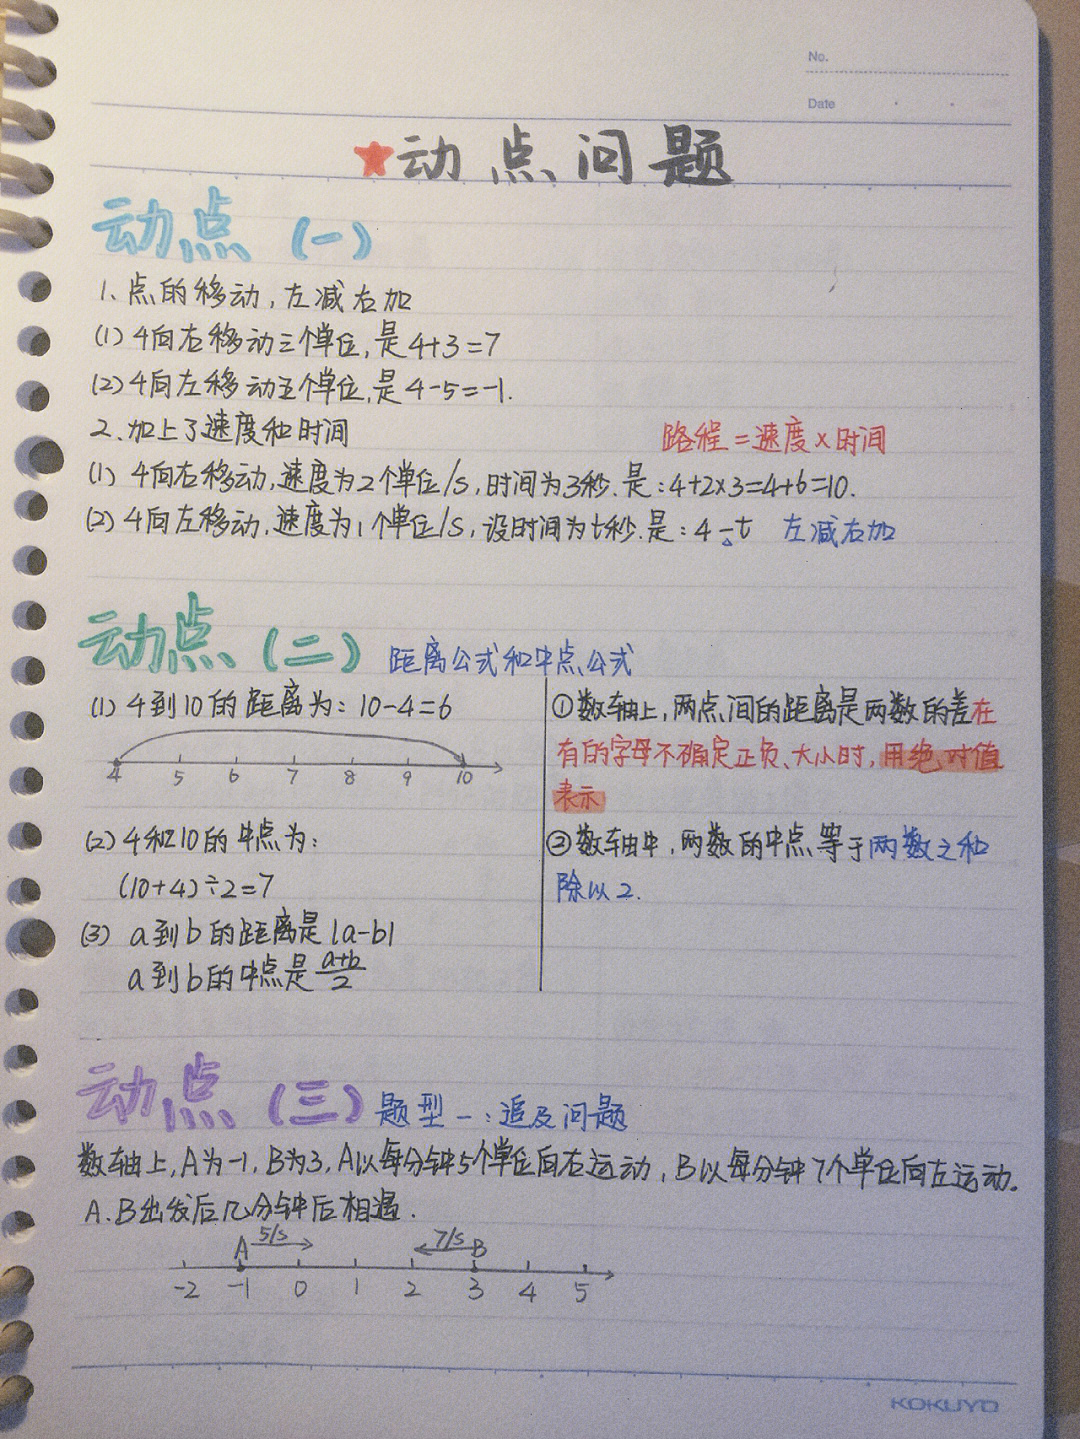 No.
Date
★动点问题
动点(一)
1、点的移动,左减右加
(1)4向右移动三个单位,是4+3=7
(2)4向左移动五个单位,是4-5=-1.
2、加上了速度和时间
路程=速度×时间
(1) 4向右移动,速度为2个单位/s,时间为3秒.是:4+2×3=4+6=10.
(2)4向左移动,速度为1个单位/s,设时间为t秒.是:4-t 左减右加
动点(二) 距离公式和中点公式
(1)4到10的距离为:10-4=6
4 5 6 7 8 9 10
(2)4和10的中点为:
(10+4)÷2=7
(3) a到b的距离是|a-b|
a到b的中点是(a+b)/2
①数轴上,两点间的距离是两数的差在
有的字母不确定正负、大小时,用绝对值
表示
②数轴中,两数的中点等于两数之和
除以2.
动点(三)题型一:追及问题
数轴上,A为-1,B为3,A以每分钟5个单位向右运动,B以每分钟7个单位向左运动。
A.B出发后几分钟后相遇.
A 5/s 7/s B
-2 -1 0 1 2 3 4 5
KOKUYO